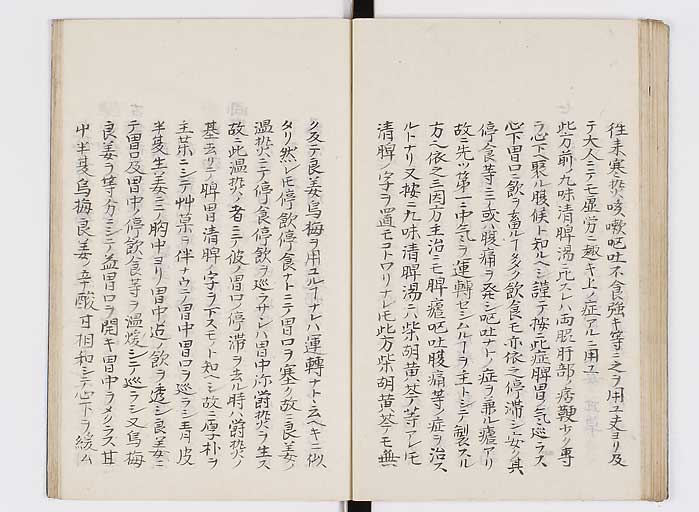 往来寒熱咳嗽嘔吐不食強キ等ニ之ヲ用ユ夫ヨリ及
テ大人ニテモ虚労ニ趣キ上ノ症アルニ用ユ
此方前ノ九味清脾湯ニ比スレハ両脇肝部ノ痞鞕少ク専
ラ心下ヘ聚ル腹候ト知ヘシ謹テ按ニ此症脾胃ノ気巡ラス
心下胃口ニ飲ヲ畜ルヿ多ク飲食モ亦依之停滞シ安ク其
停食等ニテ或ハ腹痛ヲ発シ嘔吐ナトノ症ヲ兼ル瘧アリ
故ニ先ツ第一ニ中気ヲ運轉セシムルヿヲ主トシテ製スル
方ヘ依之三因方主治ニモ脾瘧嘔吐腹痛等ノ症ヲ治ス
ルトナリ又按ニ九味清脾湯ニハ柴胡黄芩等アレハ
清脾ノ字ヲ置モコトワリナレ𪜈此方柴胡黄芩モ無
ク反テ良姜烏梅ヲ用ユルヿナレハ運轉ナト云ヘキニ似
タリ然レ𪜈停飲停食ナトニテ胃口ヲ塞ク故ニ良姜ノ
温熱ニテ停食停飲ヲ巡ラサレハ胃中弥欝熱ヲ生ス
故ニ此温熱ノ者ニテ彼ノ胃口ノ停滞ヲ去ル時ハ欝熱ノ
基去リテ脾胃清脾ノ字ヲ下スモノト知ヘシ故ニ厚朴ヲ
主薬ニシテ草菓ヲ伴ナウテ胃中胃口ヲ巡ラシ青皮
半夏生姜ニテ胸中ヨリ胃中迄ノ飲ヲ透シ良姜ニ
テ胃口及胃中ノ停飲食等ヲ温煖シテ巡ラシ又烏梅
良姜ヲ等分ニシテ益胃口ヲ開キ胃中ヲメクラス甘
中半夏烏梅良姜ノ辛酸甘相和シテ心下ヲ緩ム